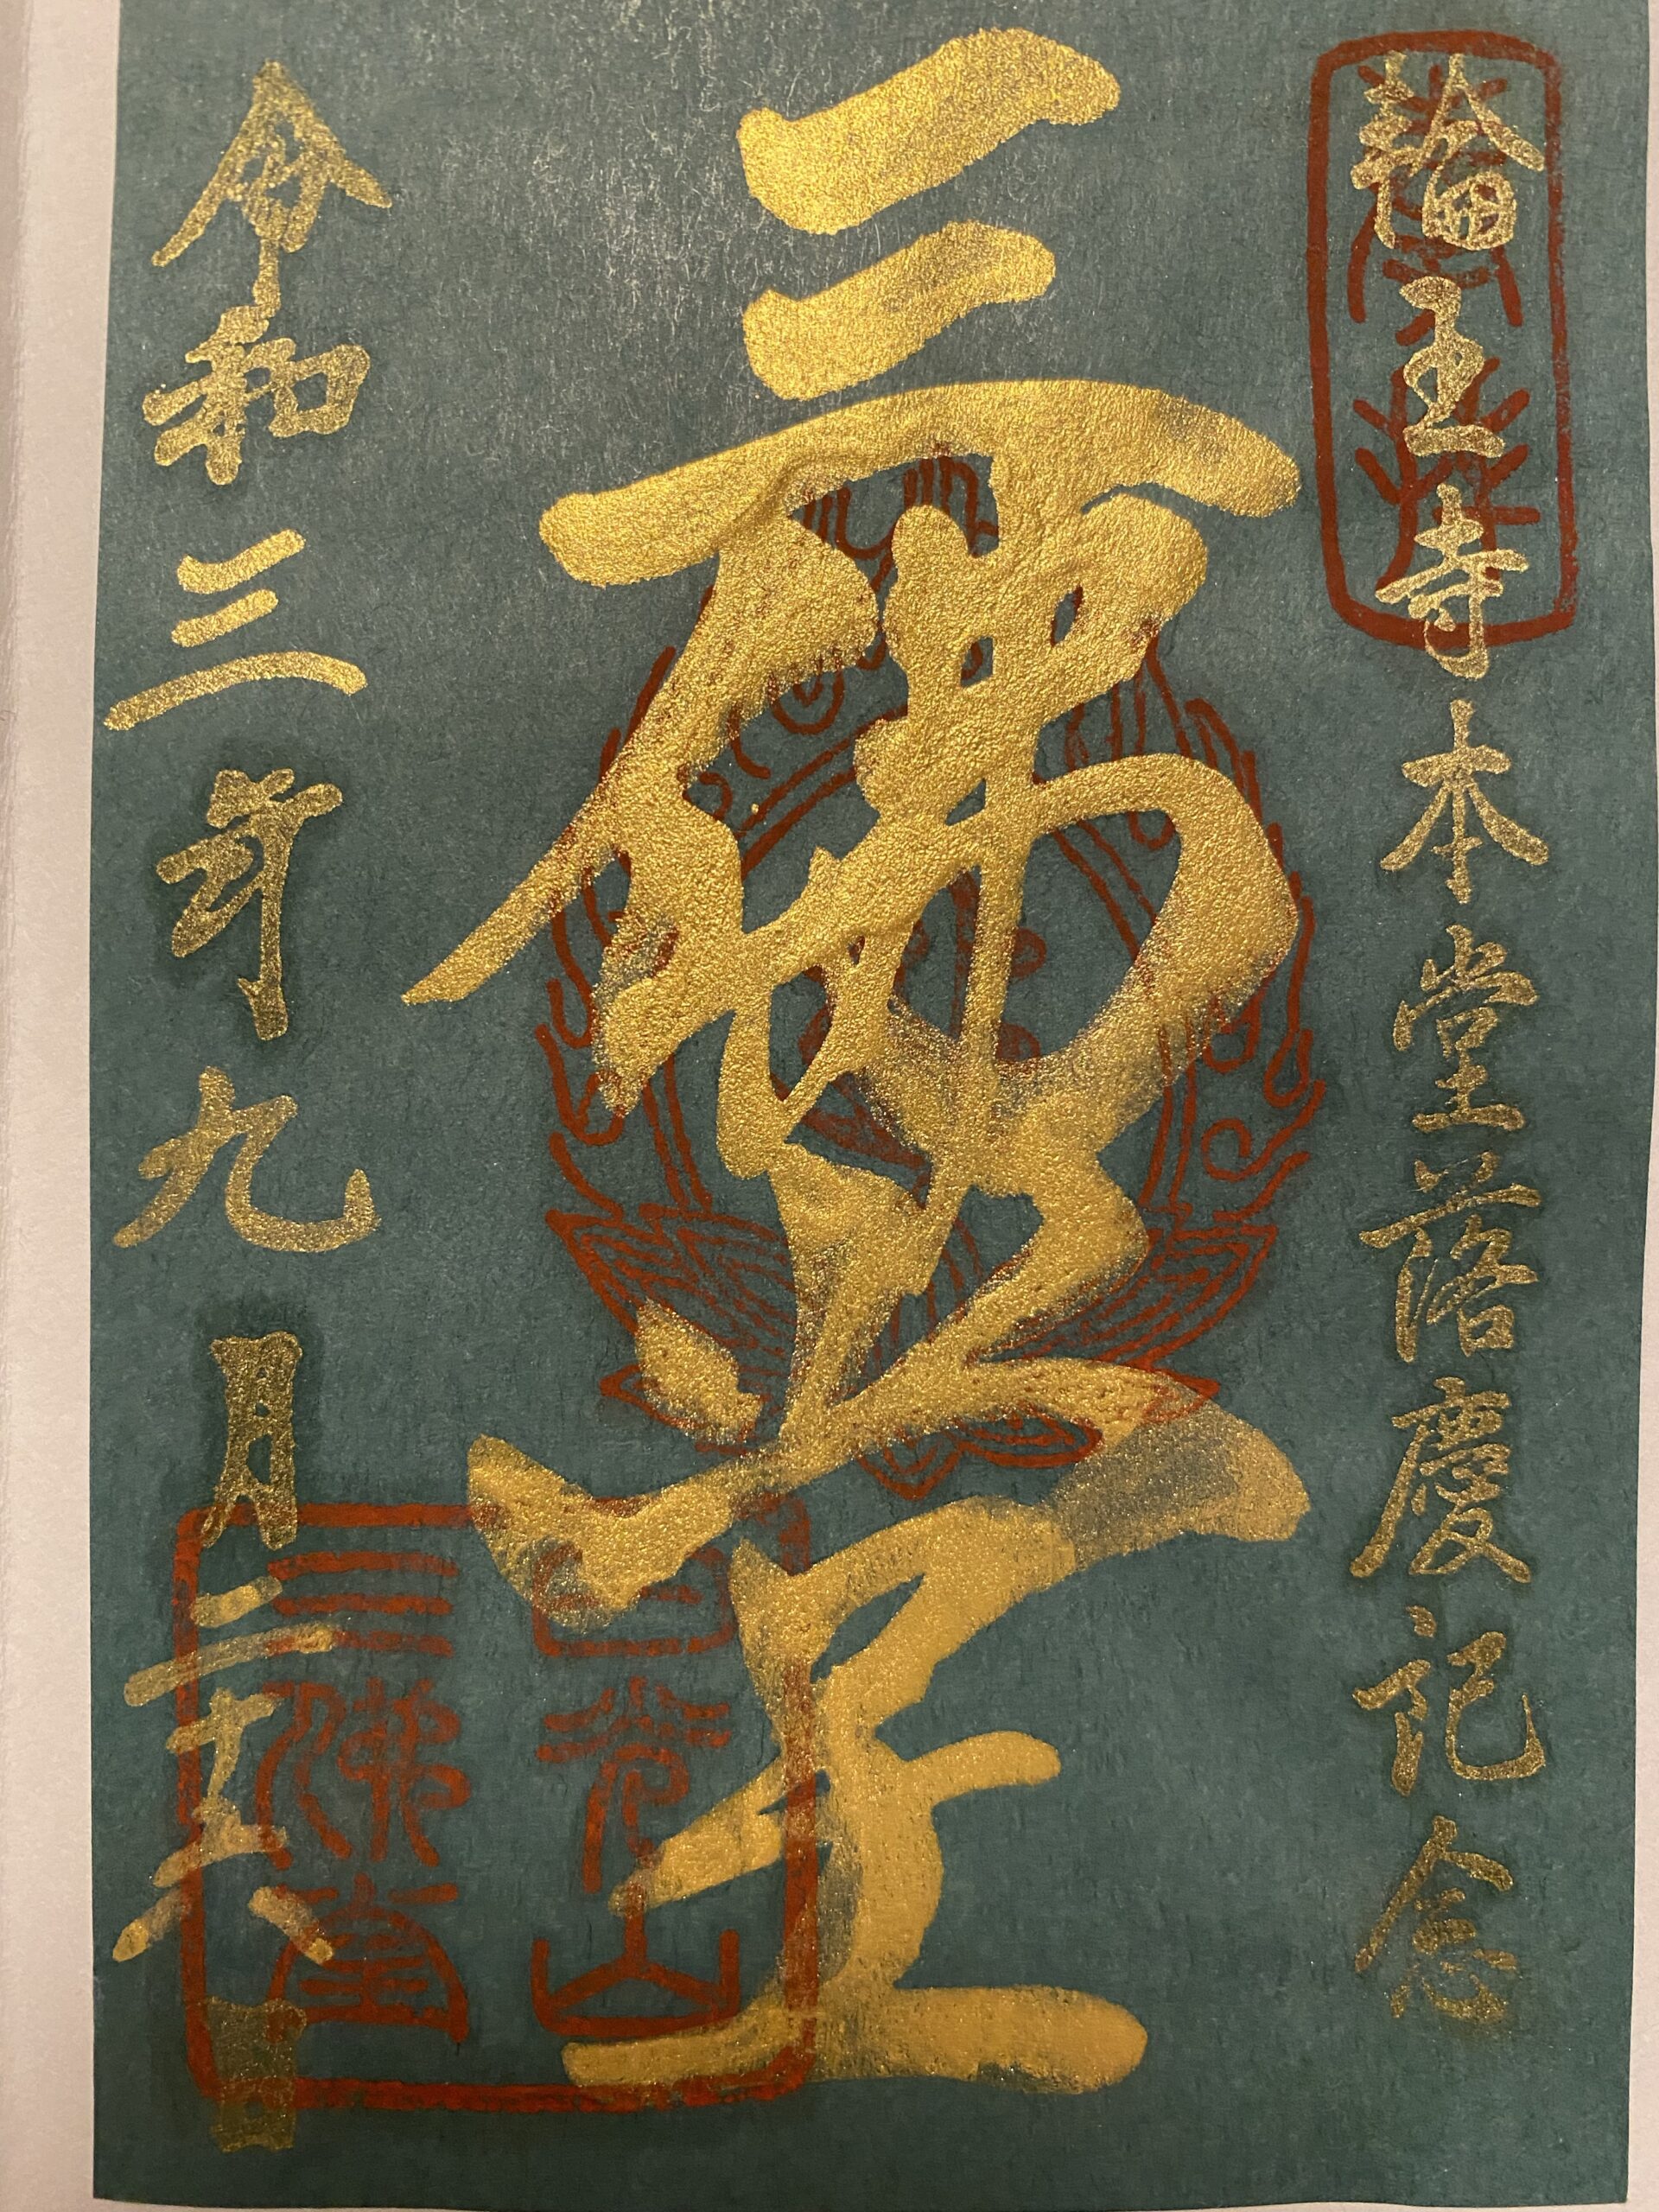 輪王寺本堂落慶記念
三佛堂
令和三年九月二十六日
日光山
三佛堂